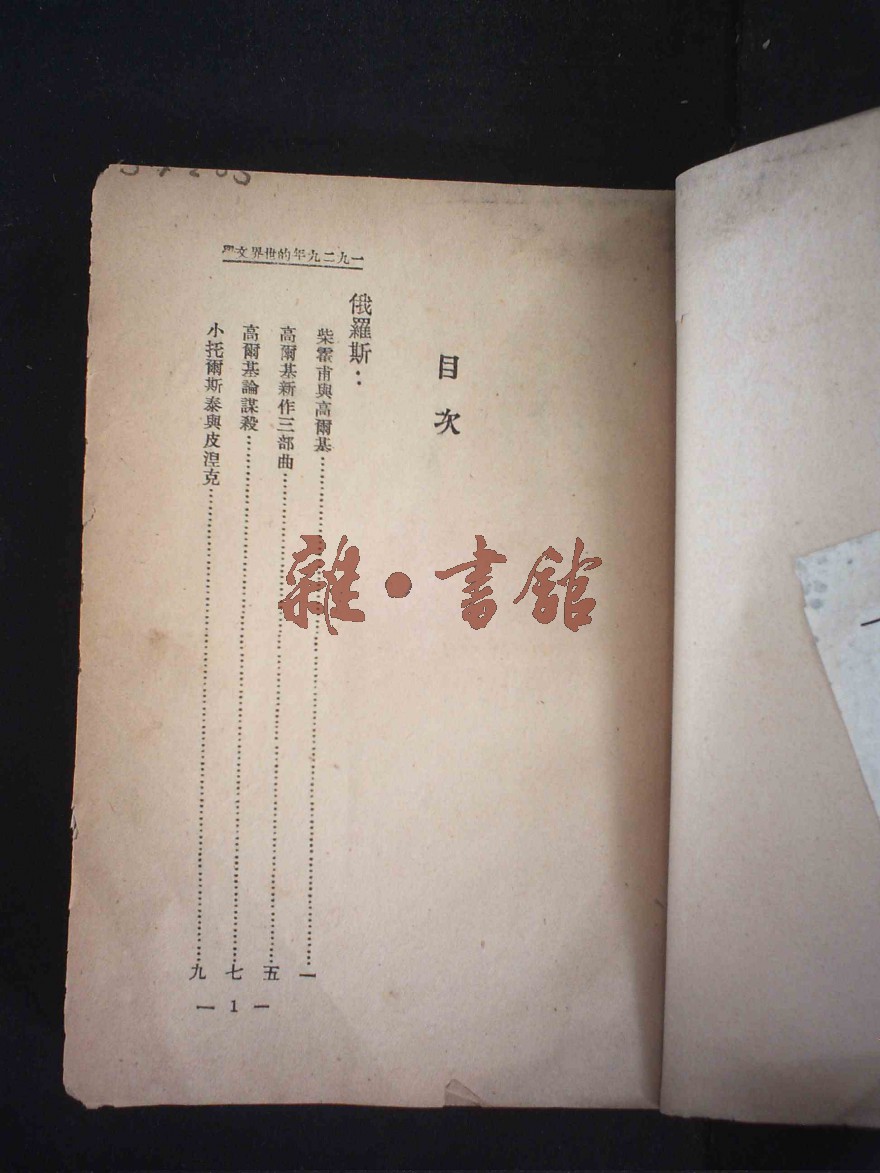 一九二九年的世界文學
目次
俄羅斯：
柴霍甫與高爾基……一
高爾基新作三部曲……五
高爾基論謀殺……七
小托爾斯泰與皮涅克……九
— 1 —
雜·書館